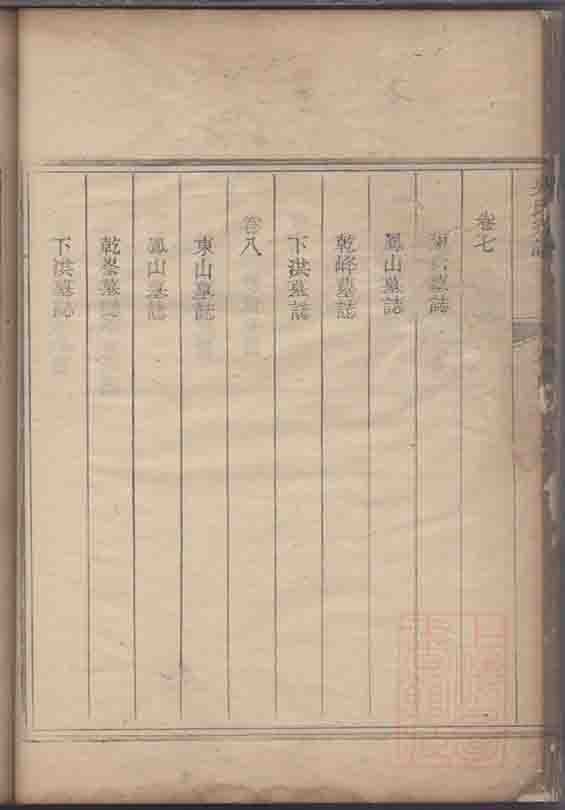 卷七
東山墓誌
鳳山墓誌
乾峰墓誌
下洪墓誌
卷八
東山墓誌
鳳山墓誌
乾峯墓誌
下洪墓誌